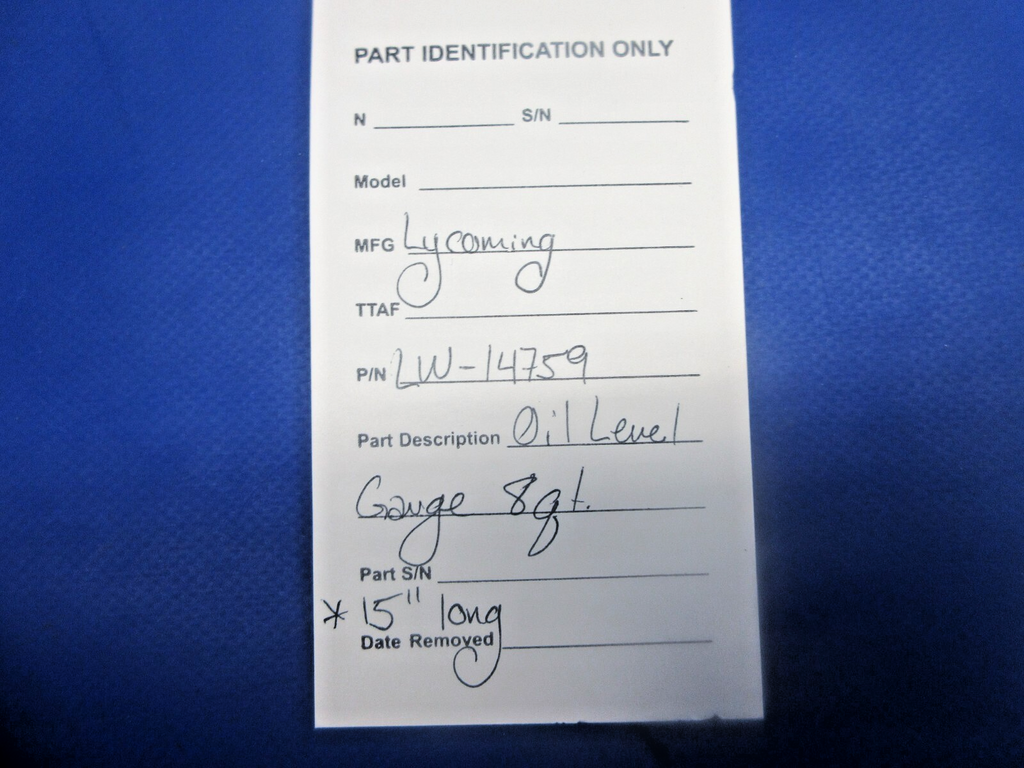 PART IDENTIFICATION ONLY
N S/N
Model
MFG Lycoming
TTAF
P/N LW-14759
Part Description Oil Level
Gauge 8qt.
Part S/N
* 15" long
Date Removed